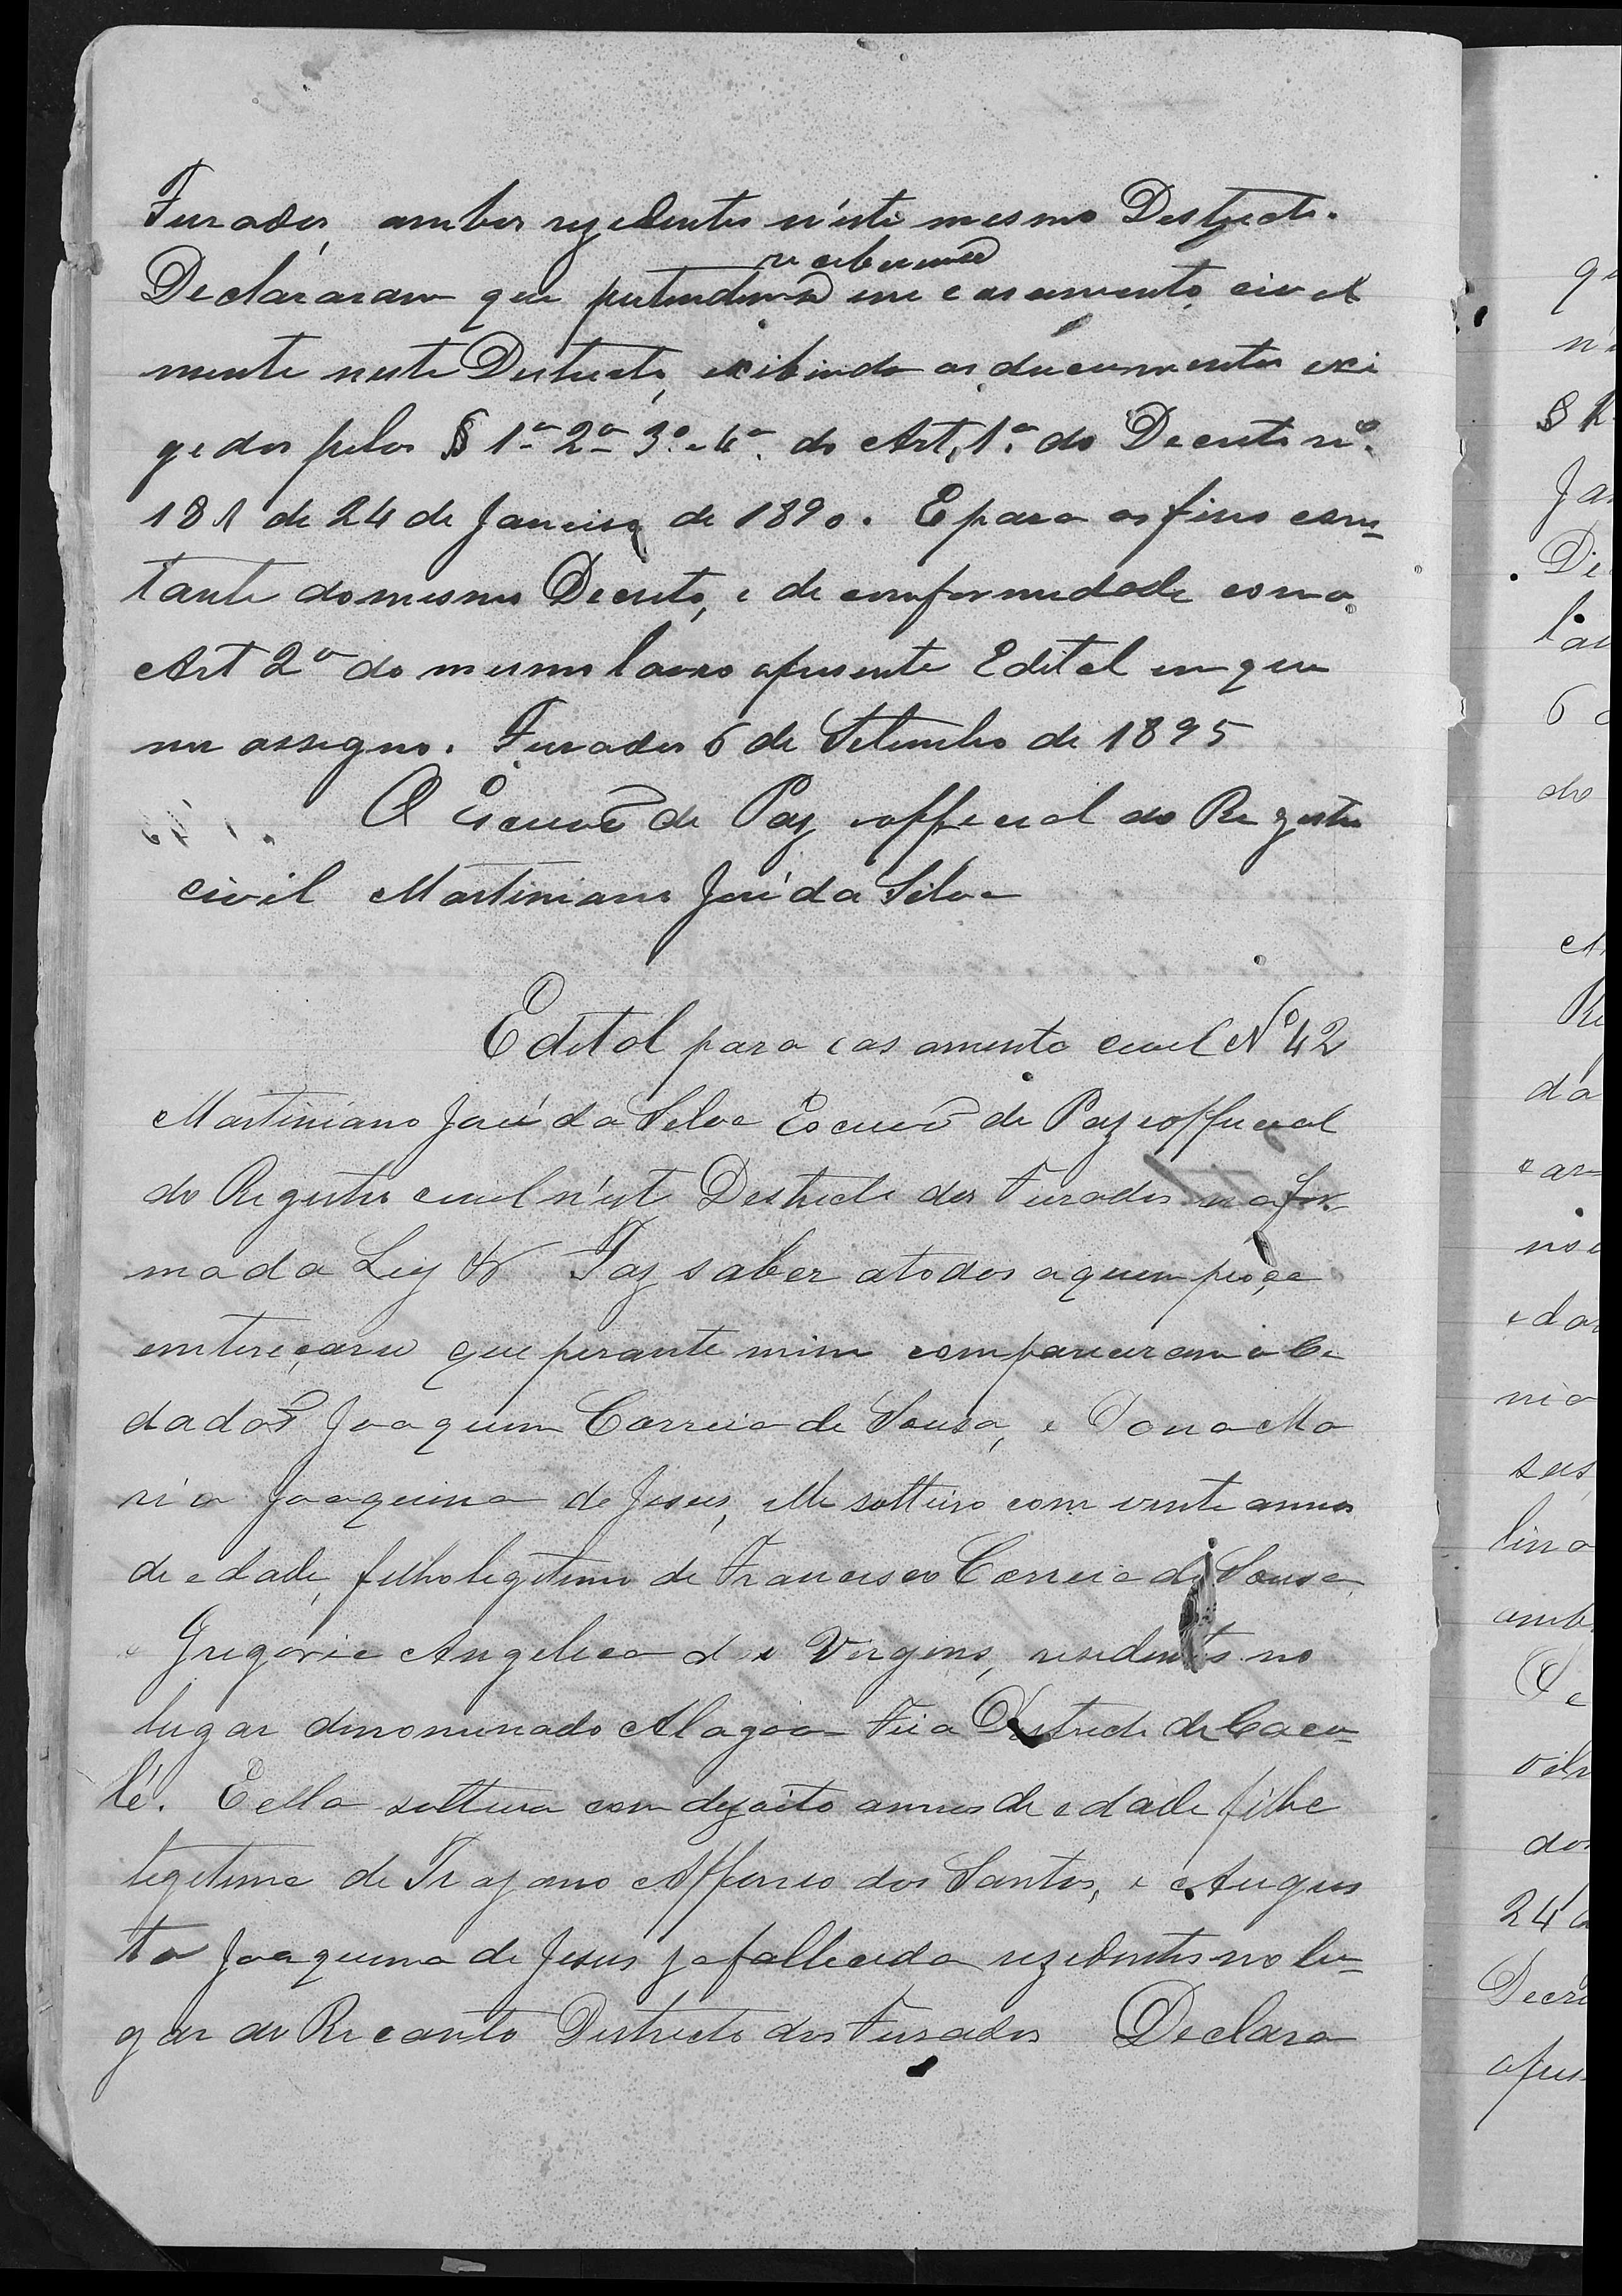 Furados, ambos rezedentes n'este mesmo Destrecto.
receberem-se
Declararam que pertendem em casamento civel
mente neste Destrecto, exibindo os documentos exi
gedos pelos § 1º 2º 3º e 4º do Art, 1º do Decreto nº
181 de 24 de Janeiro de 1890. E para os fins cons-
tante do mesmo Decreto, e de comformedade com o
Art 2º do mesmo lavro o presente Edital em que
me assigno. Furados 6 de Setembro de 1895
O Escrivã de Paz e offecial do Regestro
civil Martiniano José da Silva
Edital para casamento cevel Nº 42
Martiniano José da Selva Escrevã de Paz e offecial
do Regestro cevel n'est Destrecto dos Furados na for
ma da Ley & Faz saber a todos a quem poça
enterecarse que perante mim compareceram o Ce
dadão Joaquim Correia de Sousa, e Dona Ma
ria Joaquina de Jesus, elle solteiro com vinte annos
de edade, filho legetimo de Francisco Correia de Sousa
e Gregoria Angelica das Virgens, residentes no
lugar denomenado Alagoa Fria Destrecto de Cacu-
lé. E ella solteira com dezoito annos de edade filha
legetima de Trajano Affonso dos Santos, e Augus
ta Joaquina de Jesus ja fallecida rezedentes no lu-
gar do Recanto Destrecto dos Furados Declara